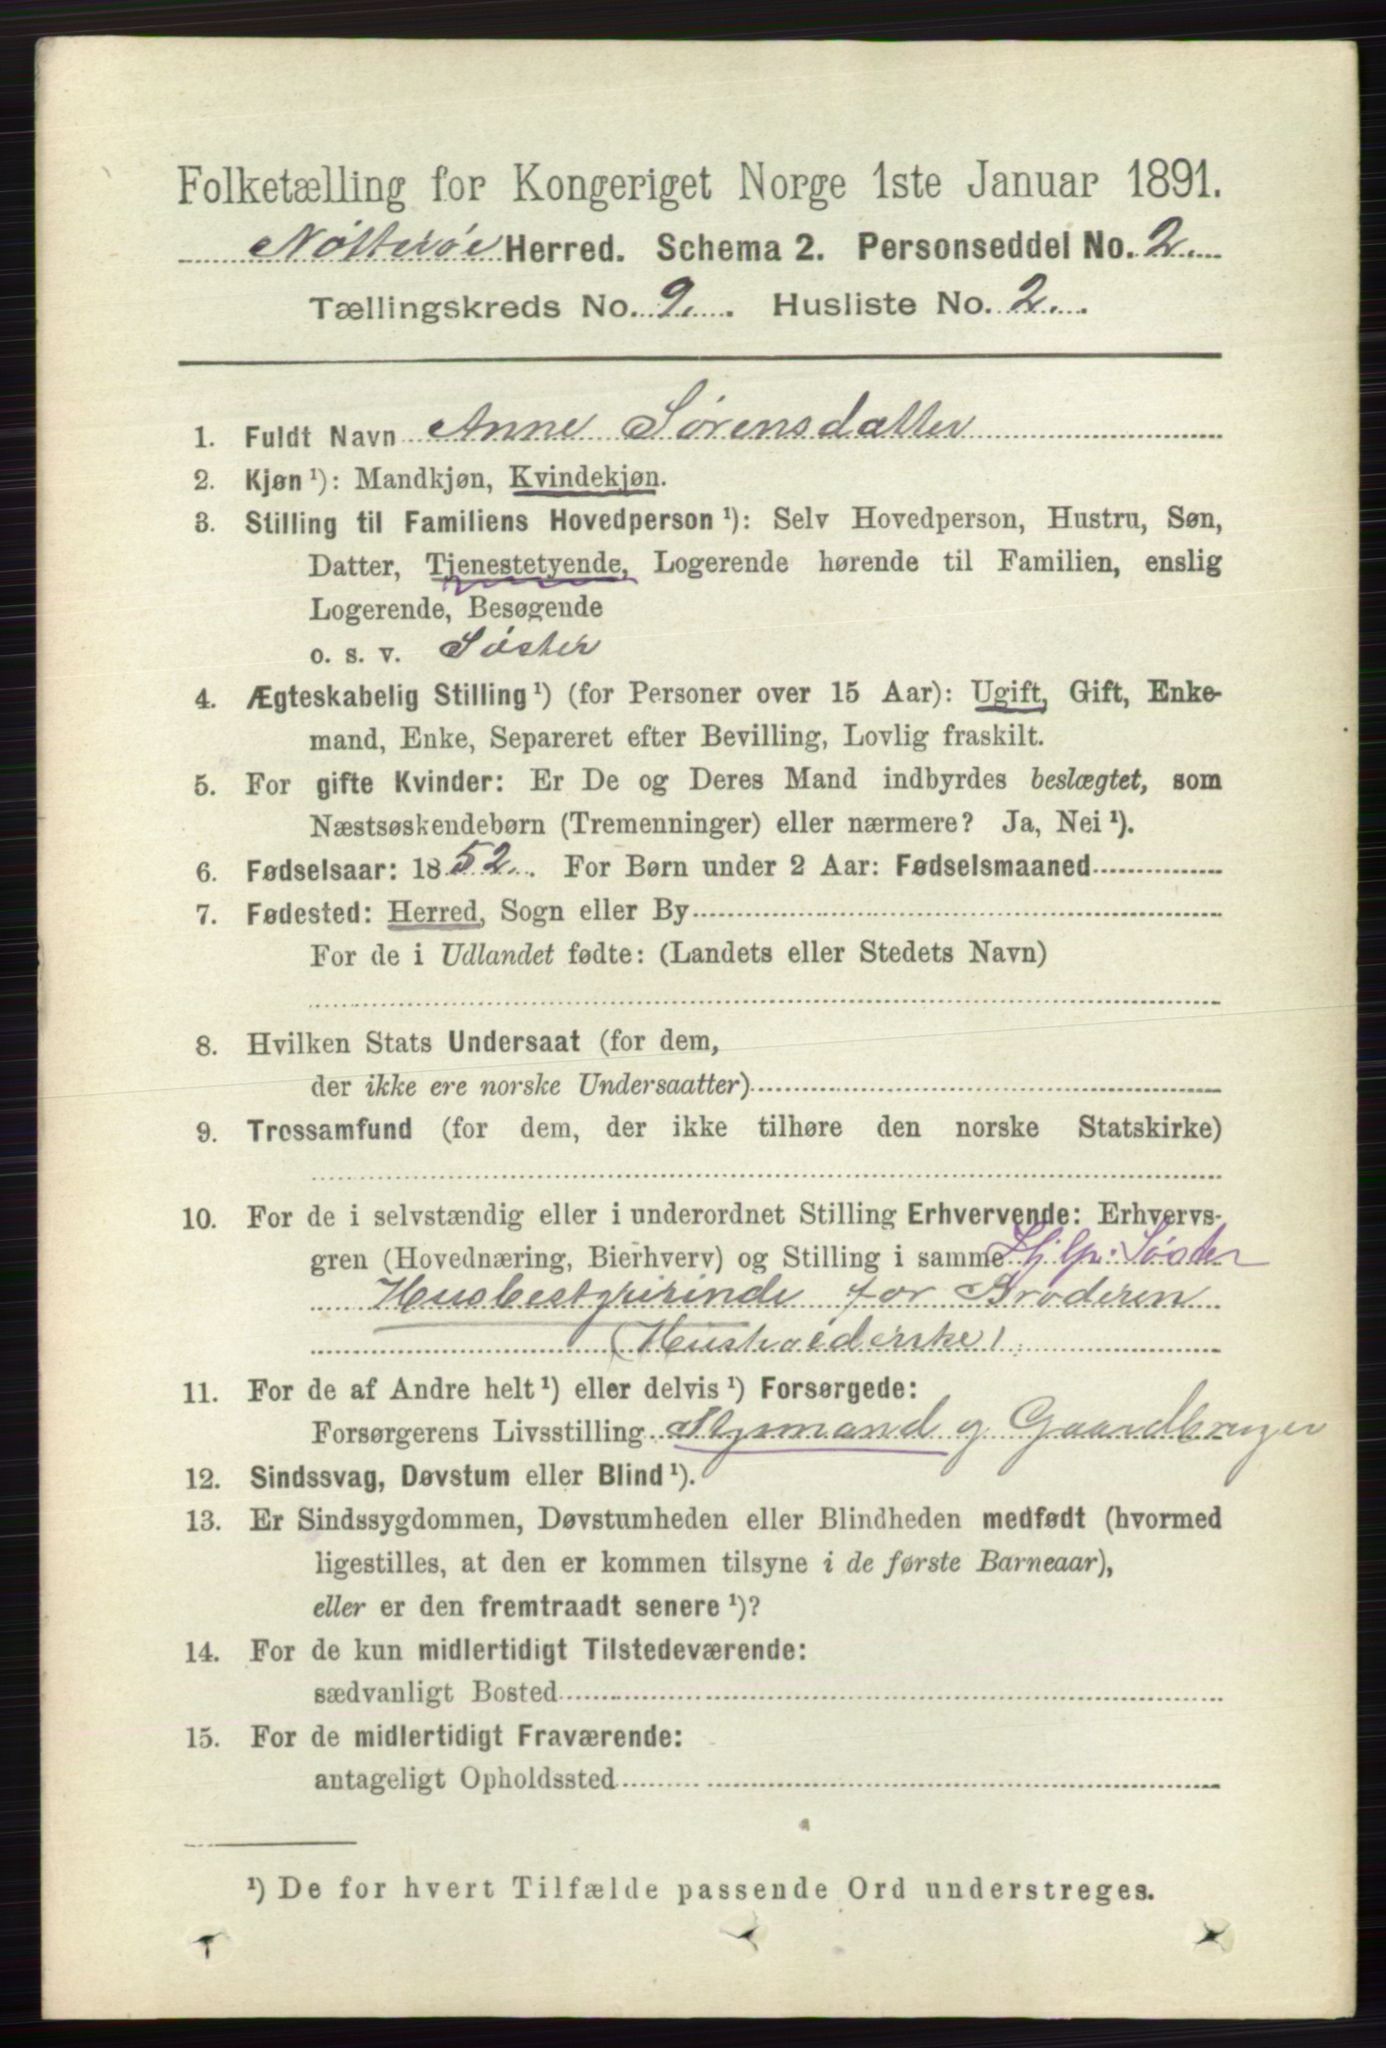 Folketælling for Kongeriget Norge 1ste Januar 1891.
Nøtterøe Herred. Schema 2. Personseddel No. 2.
Tællingskreds No. 9. Husliste No. 2.
1. Fuldt Navn Anne Sørensdatter
2. Kjøn ¹): Mandkjøn, Kvindekjøn.
3. Stilling til Familiens Hovedperson ¹): Selv Hovedperson, Hustru, Søn,
Datter, Tjenestetyende, Logerende hørende til Familien, enslig
Logerende, Besøgende
o. s. v. Søster
4. Ægteskabelig Stilling ¹) (for Personer over 15 Aar): Ugift, Gift, Enke-
mand, Enke, Separeret efter Bevilling, Lovlig fraskilt.
5. For gifte Kvinder: Er De og Deres Mand indbyrdes beslægtet, som
Næstsøskendebørn (Tremenninger) eller nærmere? Ja, Nei ¹).
6. Fødselsaar: 1852. For Børn under 2 Aar: Fødselsmaaned
7. Fødested: Herred, Sogn eller By
For de i Udlandet fødte: (Landets eller Stedets Navn)
8. Hvilken Stats Undersaat (for dem,
der ikke ere norske Undersaatter)
9. Trossamfund (for dem, der ikke tilhøre den norske Statskirke)
10. For de i selvstændig eller i underordnet Stilling Erhvervende: Erhvervs-
gren (Hovednæring, Bierhverv) og Stilling i samme Hjlp: Søster
Husbestyrinde for Broderen
(Husholderske)
11. For de af Andre helt ¹) eller delvis ¹) Forsørgede:
Forsørgerens Livsstilling g Gaardbruger
12. Sindssvag, Døvstum eller Blind ¹).
13. Er Sindssygdommen, Døvstumheden eller Blindheden medfødt (hvormed
ligestilles, at den er kommen tilsyne i de første Barneaar),
eller er den fremtraadt senere ¹)?
14. For de kun midlertidigt Tilstedeværende:
sædvanligt Bosted
15. For de midlertidigt Fraværende:
antageligt Opholdssted
¹) De for hvert Tilfælde passende Ord understreges.